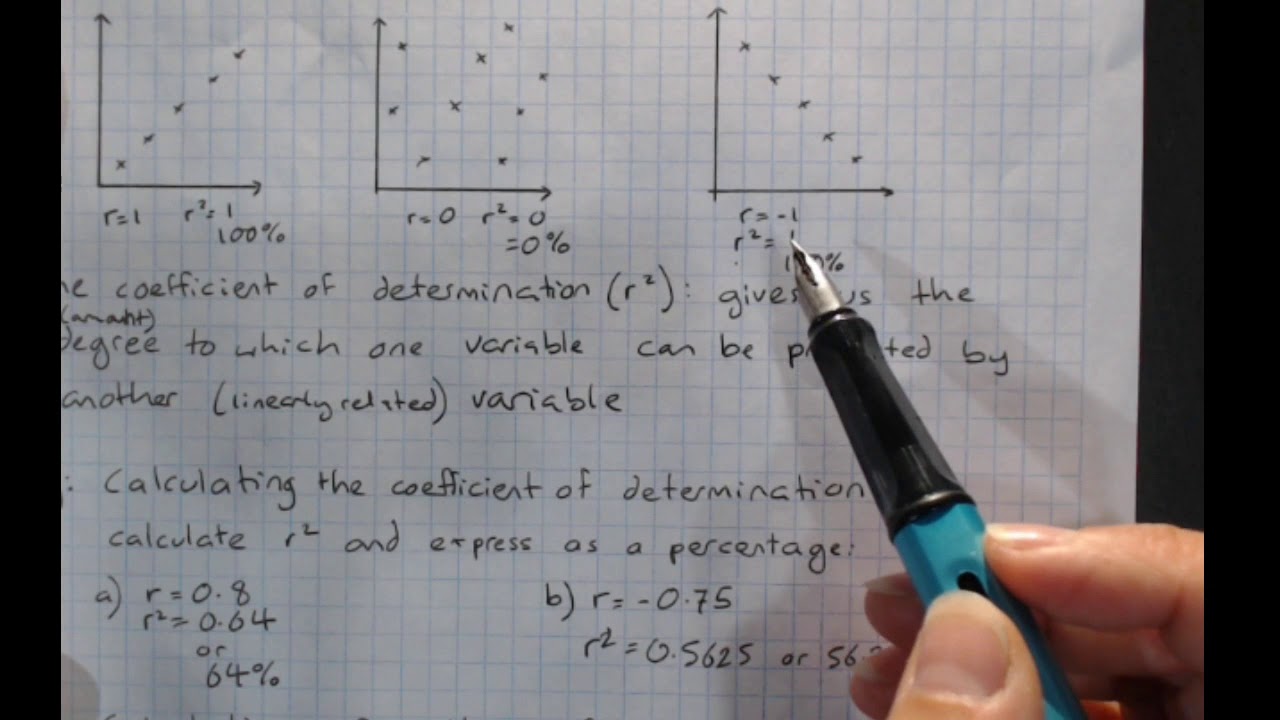 r=1 r²=1
100%
r=0 r²=0
=0%
r=-1
r²=1
%
coefficient of determination (r²): gives us the
(amount)
degree to which one variable can be by
another (linearly related) variable
Calculating the coefficient of determination
calculate r² and express as a percentage:
a) r=0.8
r²=0.64
or
64%
b) r=-0.75
r²=0.5625 or 56.